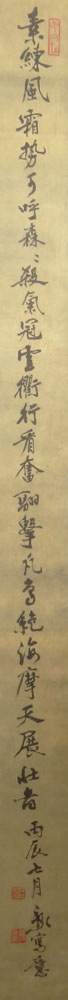 素練風霜勢可呼森々殺氣冠雲衢行看奮翮擊凡鳥絕海摩天展壯圖
丙辰七月
寫意